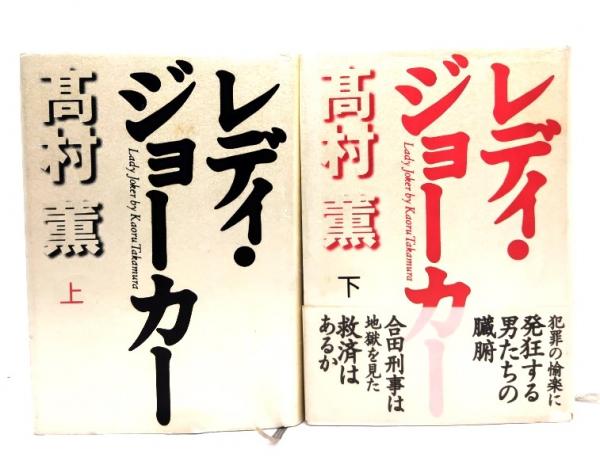 レディ・
ジョーカー
Lady Joker by Kaoru Takamura
髙村薫
上
レディ・
ジョーカー
Lady Joker by Kaoru Takamura
髙村薫
下
犯罪の愉楽に
発狂する
男たちの
臓腑
合田刑事は
地獄を見た
救済は
あるか